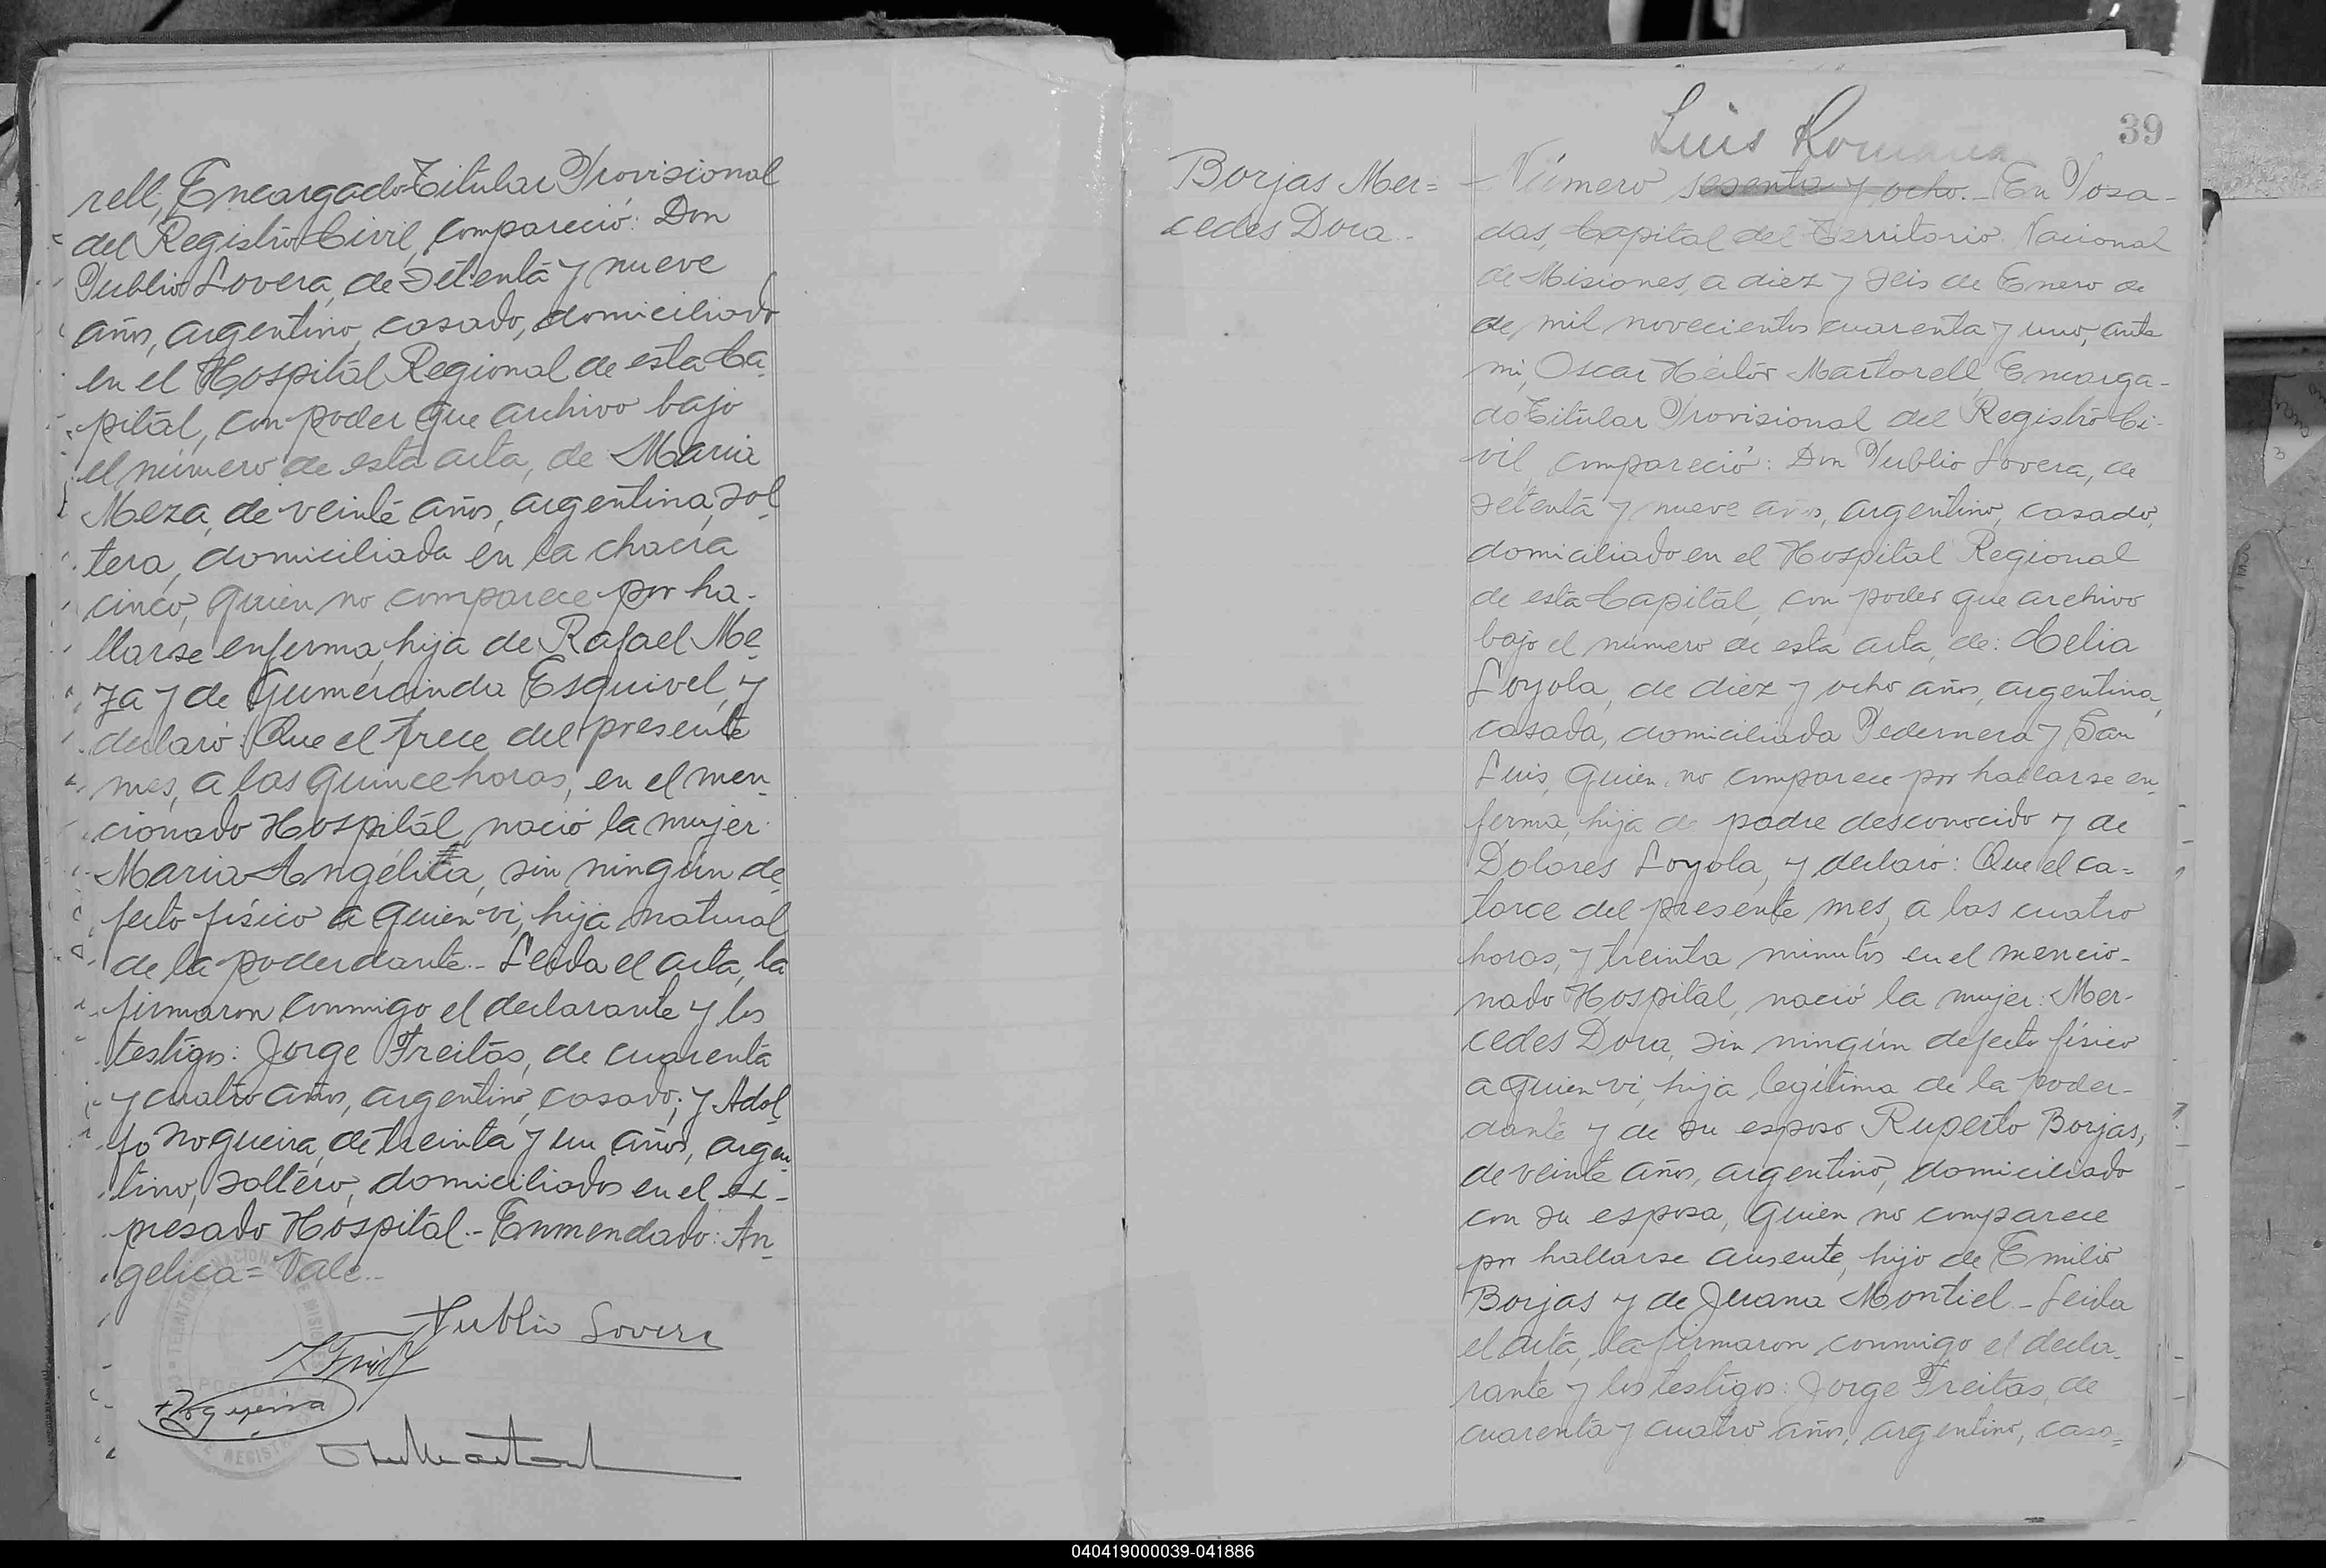 rell, Encargado Titular Provisional
del Registro Civil, compareció: Don
Publio Lovera, de setenta y nueve
años, argentino, casado, domiciliado
en el Hospital Regional de esta Ca-
pital, con poder que archivo bajo
el número de esta acta, de Maria
Meza, de veinte años, argentina, sol-
tera, domiciliada en la chacra
cinco, quien no comparece por ha-
llarse enferma, hija de Rafael Me-
za y de Gumercinda Esquivel, y
declaró: Que el trece del presente
mes, a las quince horas, en el men-
cionado Hospital, nació la mujer
Maria Angélica, sin ningún de-
fecto físico a quien vi, hija natural
de la poderdante.- Leida el acta, la
firmaron conmigo el declarante y los
testigos: Jorge Freitas, de cuarenta
y cuatro años, argentino, casado; y Adol-
fo Nogueira, de treinta y un años, argen-
tino, soltero, domiciliados en el ex-
presado Hospital.- Enmendado: An-
gelica = Vale.-
Publio Lovera
Nogueira
39
Luis Romana
Borjas Mer=
cedes Dora.-
Número sesenta y ocho.- En Posa-
das, Capital del Territorio Nacional
de Misiones, a diez y seis de Enero de
de mil novecientos cuarenta y uno, ante
mi, Oscar Héctor Martorell, Encarga-
do Titular Provisional del Registro Ci-
vil, compareció: Don Publio Lovera, de
setenta y nueve años, argentino, casado,
domiciliado en el Hospital Regional
de esta Capital, con poder que archivo
bajo el número de esta acta, de: Celia
Loyola, de diez y ocho años, argentina,
casada, domiciliada Pedernera y San
Luis, quien no comparece por hallarse en-
ferma, hija de padre desconocido y de
Dolores Loyola, y declaró: Que el ca=
torce del presente mes, a las cuatro
horas, y treinta minutos en el mencio-
nado Hospital, nació la mujer: Mer-
cedes Dora, sin ningún defecto físico
a quien vi, hija legítima de la poder-
dante y de su esposo Ruperto Borjas,
de veinte años, argentino, domiciliado
con su esposa, quien no comparece
por hallarse ausente, hijo de Emilio
Borjas y de Juana Montiel.- Leida
el acta, la firmaron conmigo el decla-
rante y los testigos: Jorge Freitas, de
cuarenta y cuatro años, argentino, casa=
040419000039-041886